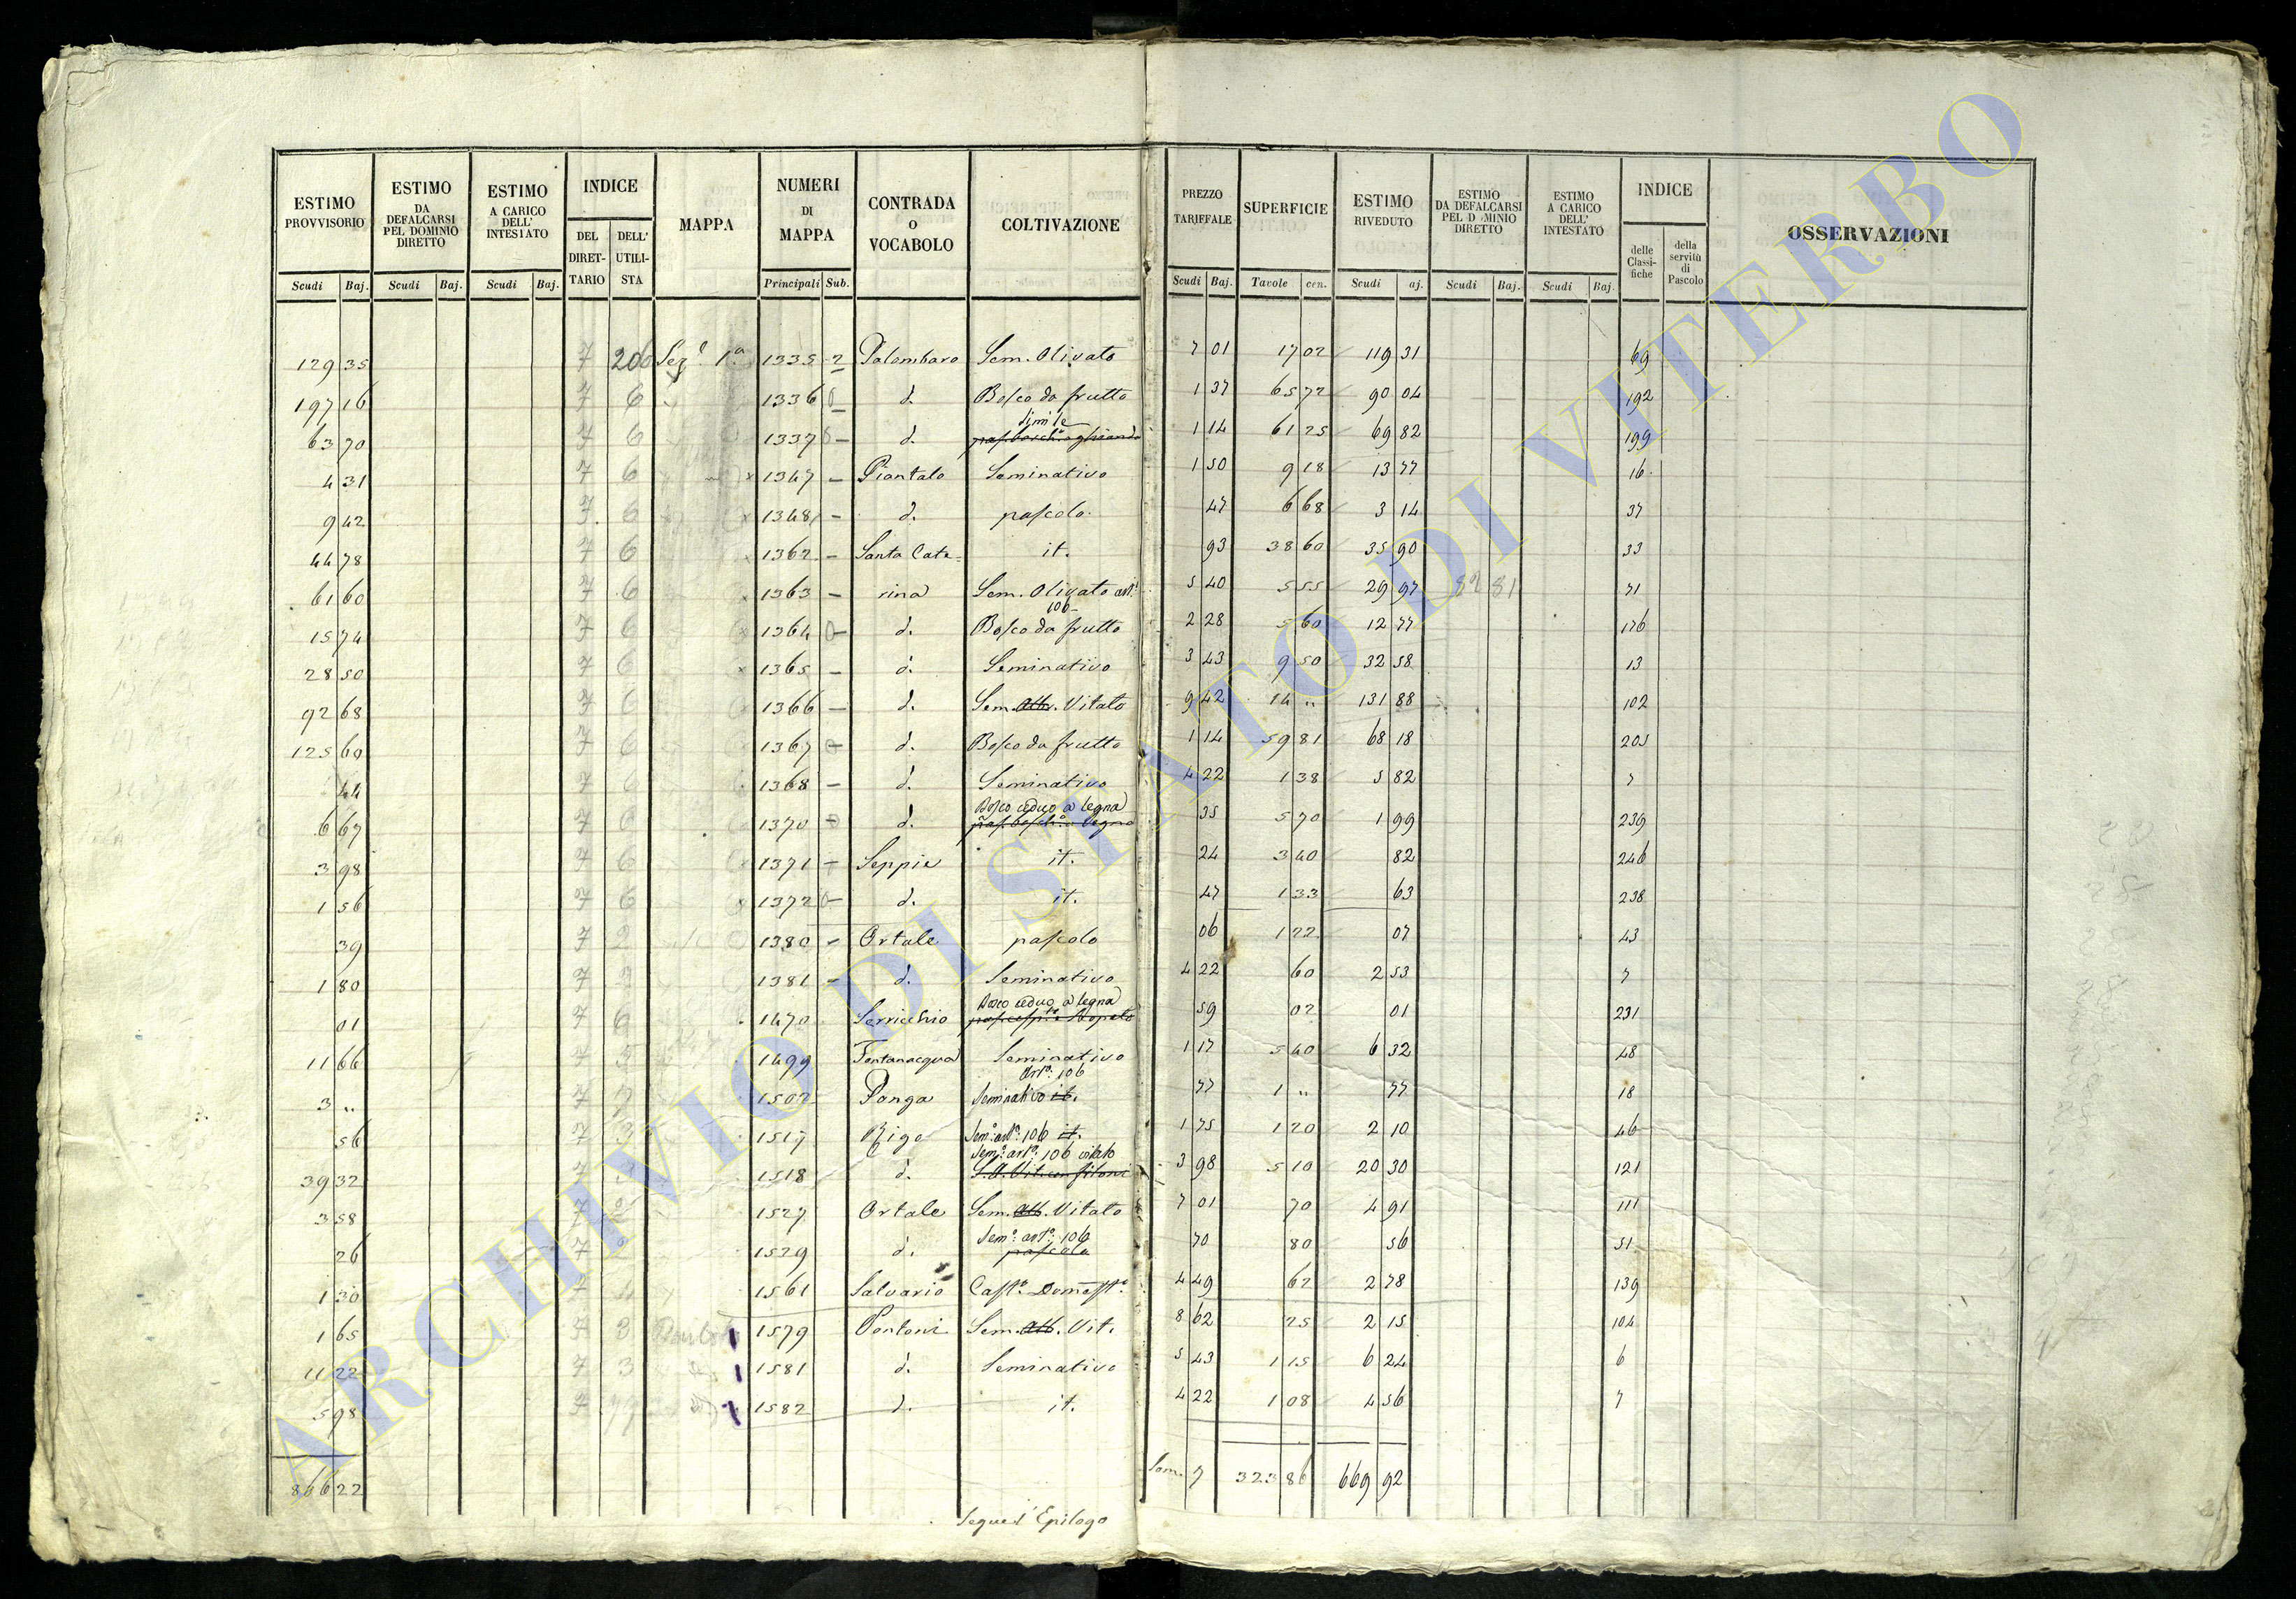 ESTIMO PROVVISORIO Scudi Baj. ESTIMO DA DEFALCARSI PEL DOMINIO DIRETTO Scudi Baj. ESTIMO A CARICO DELL' INTESTATO Scudi Baj. INDICE DEL DIRET-TARIO DELL' UTILI-STA MAPPA NUMERI DI MAPPA Principali Sub. CONTRADA o VOCABOLO COLTIVAZIONE PREZZO TARIFFALE Scudi Baj. SUPERFICIE Tavole cen. ESTIMO RIVEDUTO Scudi aj. ESTIMO DA DEFALCARSI PEL D MINIO DIRETTO Scudi Baj. ESTIMO A CARICO DELL' INTESTATO Scudi Baj. INDICE delle Classi-fiche della servitù di Pascolo OSSERVAZIONI
129 35 7 206 Sez.e 1.a 1335 2 Palombaro Sem. Olivato 7 01 17 02 119 31 69
197 16 7 6 1336 d. Bosco da frutto 1 37 65 72 90 04 192
simile
63 70 7 6 1337 – d. 1 14 61 25 69 82 199
4 31 7 6 1347 – Piantato Seminativo 1 50 9 18 13 77 16
9 42 7 6 1348 – d. pascolo 47 6 68 3 14 37
44 78 7 6 1362 – Santa Cate= it. 93 38 60 35 90 33
61 60 7 6 1363 – rina Sem. Olivato art. 5 40 5 55 29 97 71
106
15 74 7 6 1364 – d. Bosco da frutto 2 28 5 60 12 77 176
28 50 7 6 1365 – d. Seminativo 3 43 9 50 32 58 13
92 68 7 6 1366 – d. Sem. Alb. Vitato 9 42 14 " 131 88 102
125 60 7 6 1367 – d. Bosco da frutto 1 14 59 81 68 18 205
44 7 6 1368 – d. Seminativo 4 22 1 38 5 82 7
Bosco ceduo a legna
6 67 7 6 1370 – d. 35 5 70 1 99 239
3 98 7 6 1371 – Seppie it. 24 3 40 82 246
1 56 7 6 1372 – d. it. 47 1 33 63 238
39 7 2 1380 – Ortale pascolo 06 1 22 07 43
1 80 7 2 1381 – d. Seminativo 4 22 60 2 53 7
Bosco ceduo a legna
01 7 6 1470 Serricchio 59 02 01 231
11 66 7 5 1499 Fontanacqua Seminativo 1 17 5 40 6 32 48
Art.o 106
3 " 7 1502 Ponga Seminativo it. 77 1 " 77 18
56 7 3 1517 Rigo Sem.o art.o 106 it. 1 75 1 20 2 10 46
Sem.o art.o 106 vitato
39 32 7 1518 d. 3 98 5 10 20 30 121
3 58 7 2 1527 Ortale Sem. Alb. Vitato 7 01 70 4 91 111
Sem.o art.o 106
26 7 2 1529 d. pascolo 70 80 56 51
1 30 7 1561 Salvario Cast.o Domest.o 4 49 62 2 78 139
1 65 7 3 1579 Pontoni Sem. Alb. Vit. 8 62 25 2 15 104
11 22 7 3 1581 d. Seminativo 5 43 1 15 6 24 6
5 98 7 1582 d. it. 4 22 1 08 4 56 7
866 22 Som. 7 323 86 669 92
Segue l'Epilogo
ARCHIVIO DI STATO DI VITERBO